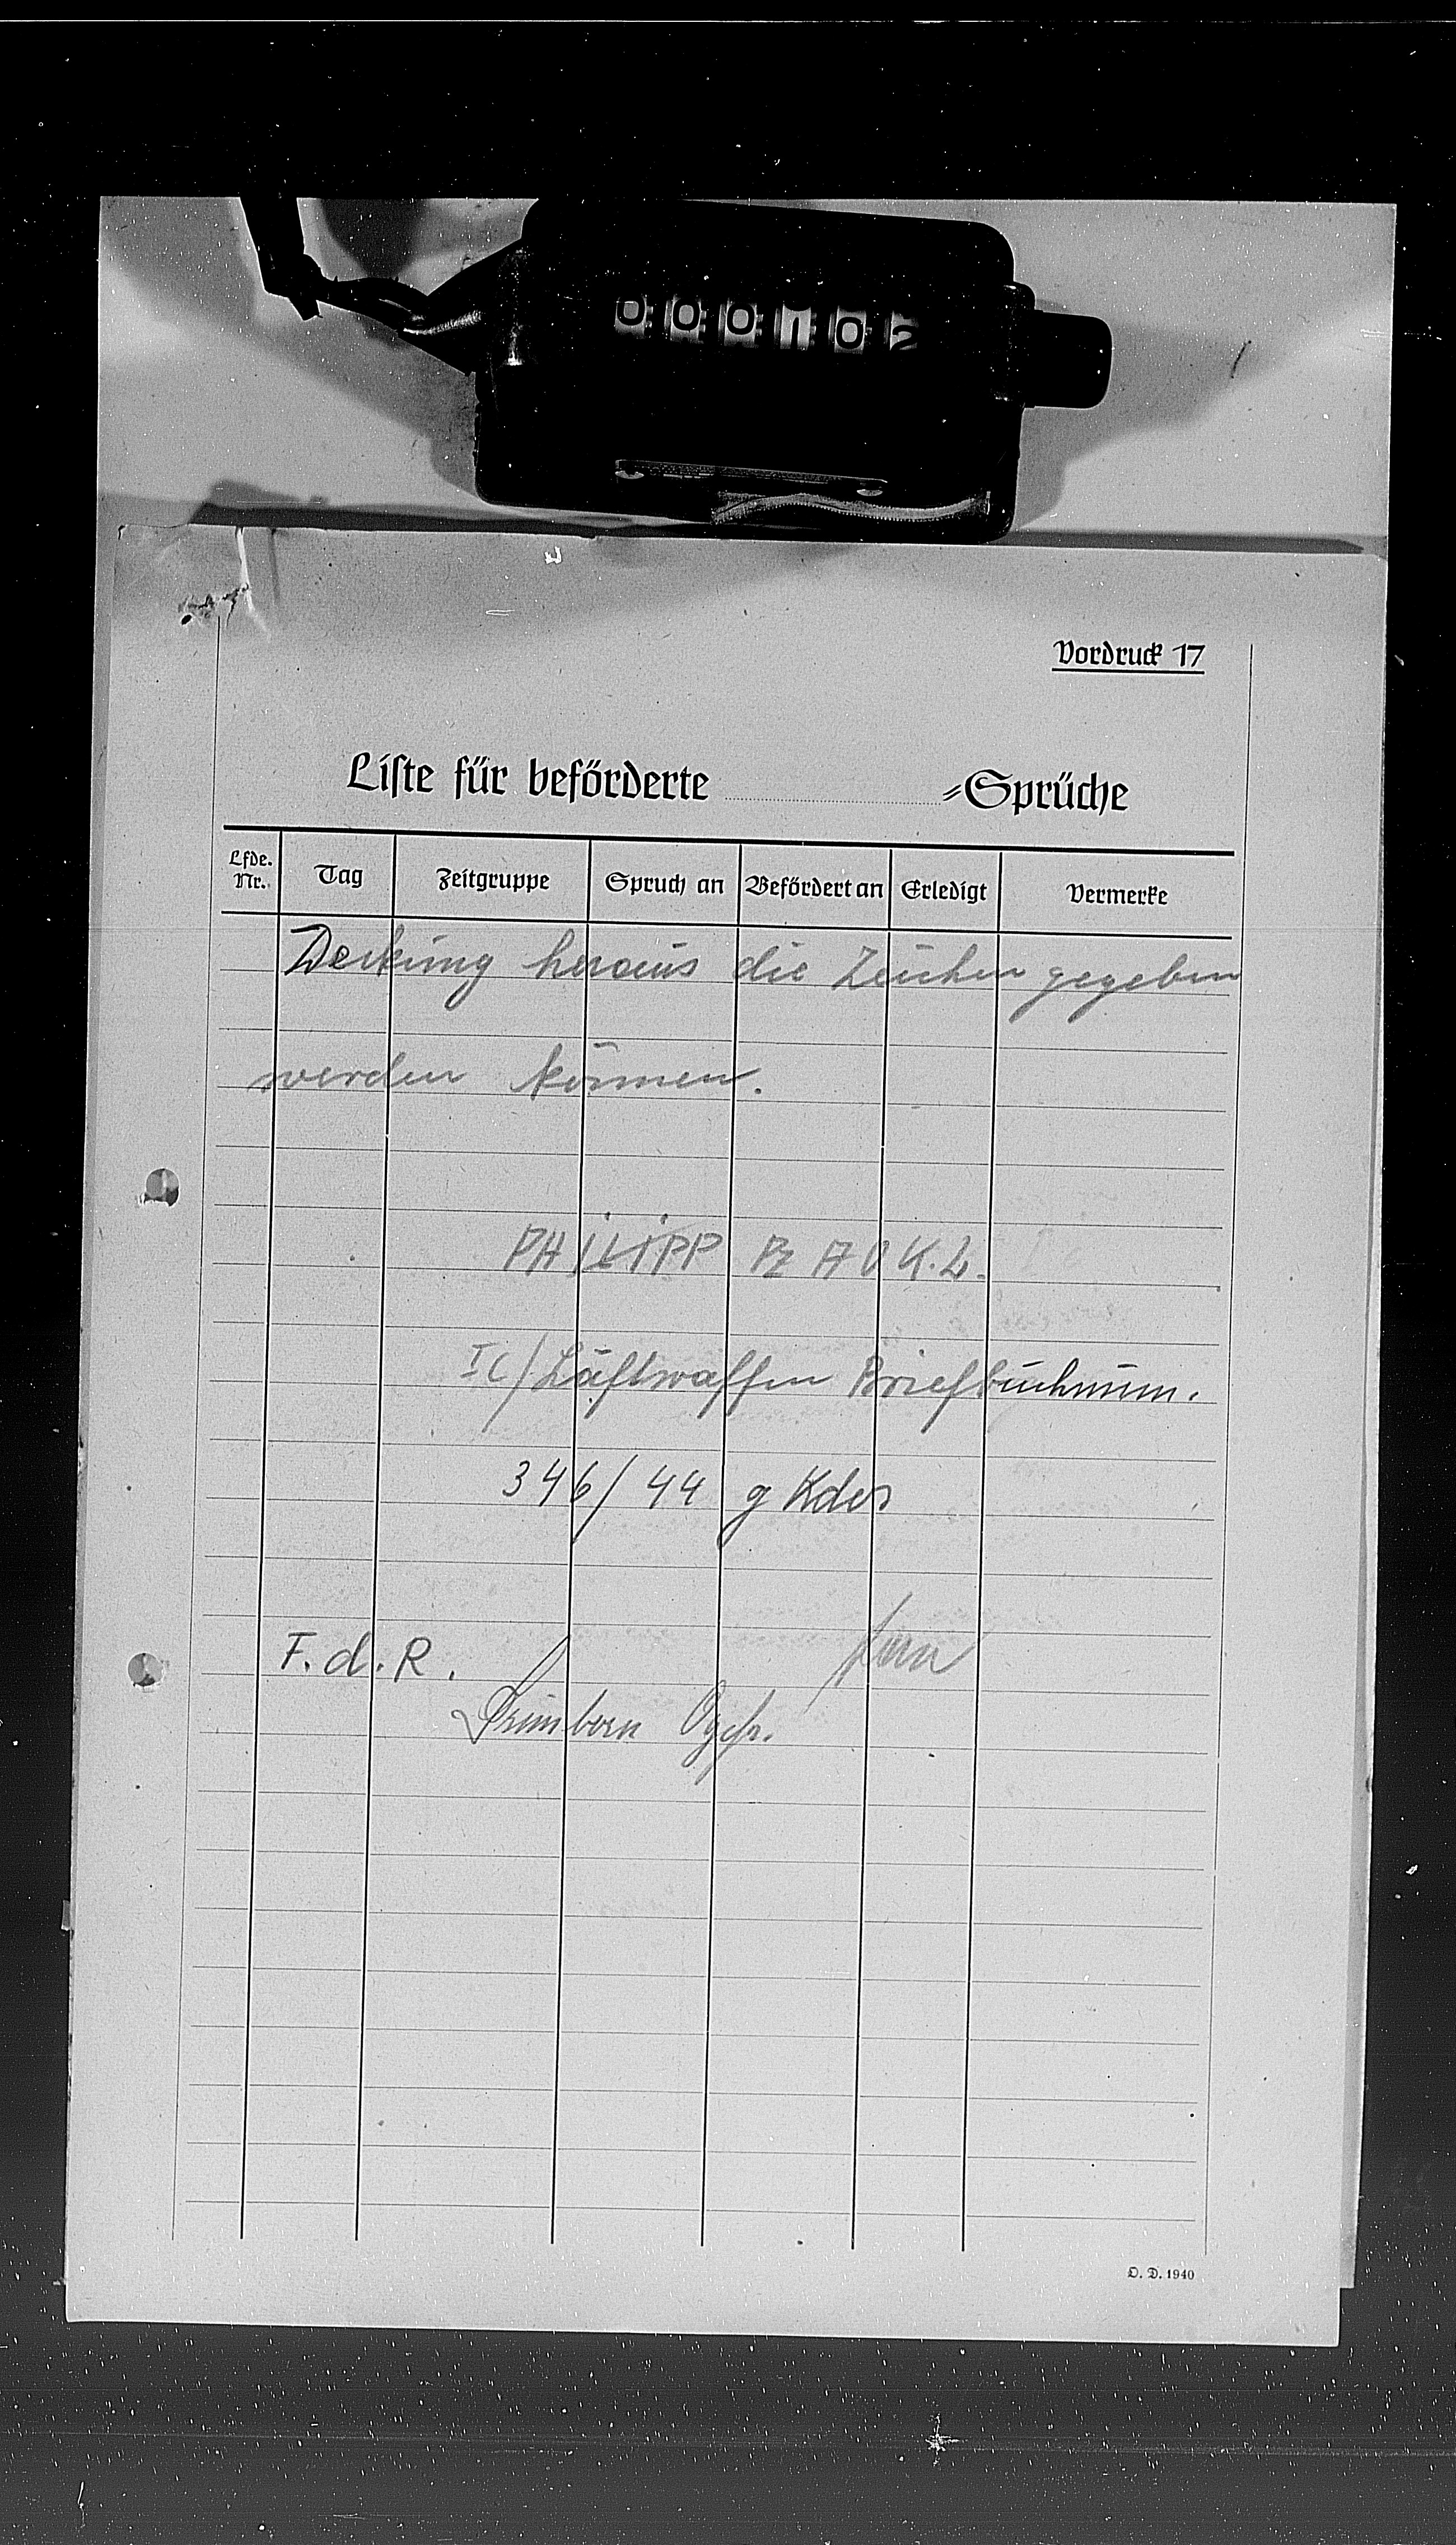 000102
Vordruck 17
Liste für beförderte ........ =Sprüche
Lfde. Nr. Tag Zeitgruppe Spruch an Befördert an Erledigt Vermerke
Deckung heraus die Zeichen gegeben
werden können.
PHILIPP Pz AOK.
Ic/Luftwaffen Briefbuchnum.
346/44 g Kdos
F. d. R.
Ogefr.
O. D. 1940